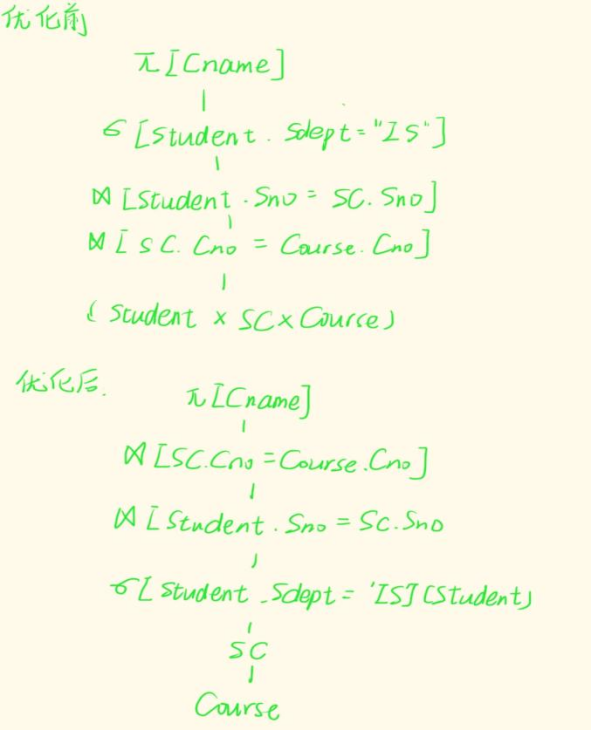 优化前
π[Cname]
σ[Student.Sdept="IS"]
⋈[Student.Sno=SC.Sno]
⋈[SC.Cno=Course.Cno]
(Student×SC×Course)
优化后.
π[Cname]
⋈[SC.Cno=Course.Cno]
⋈[Student.Sno=SC.Sno
σ[Student.Sdept='IS](Student)
SC
Course